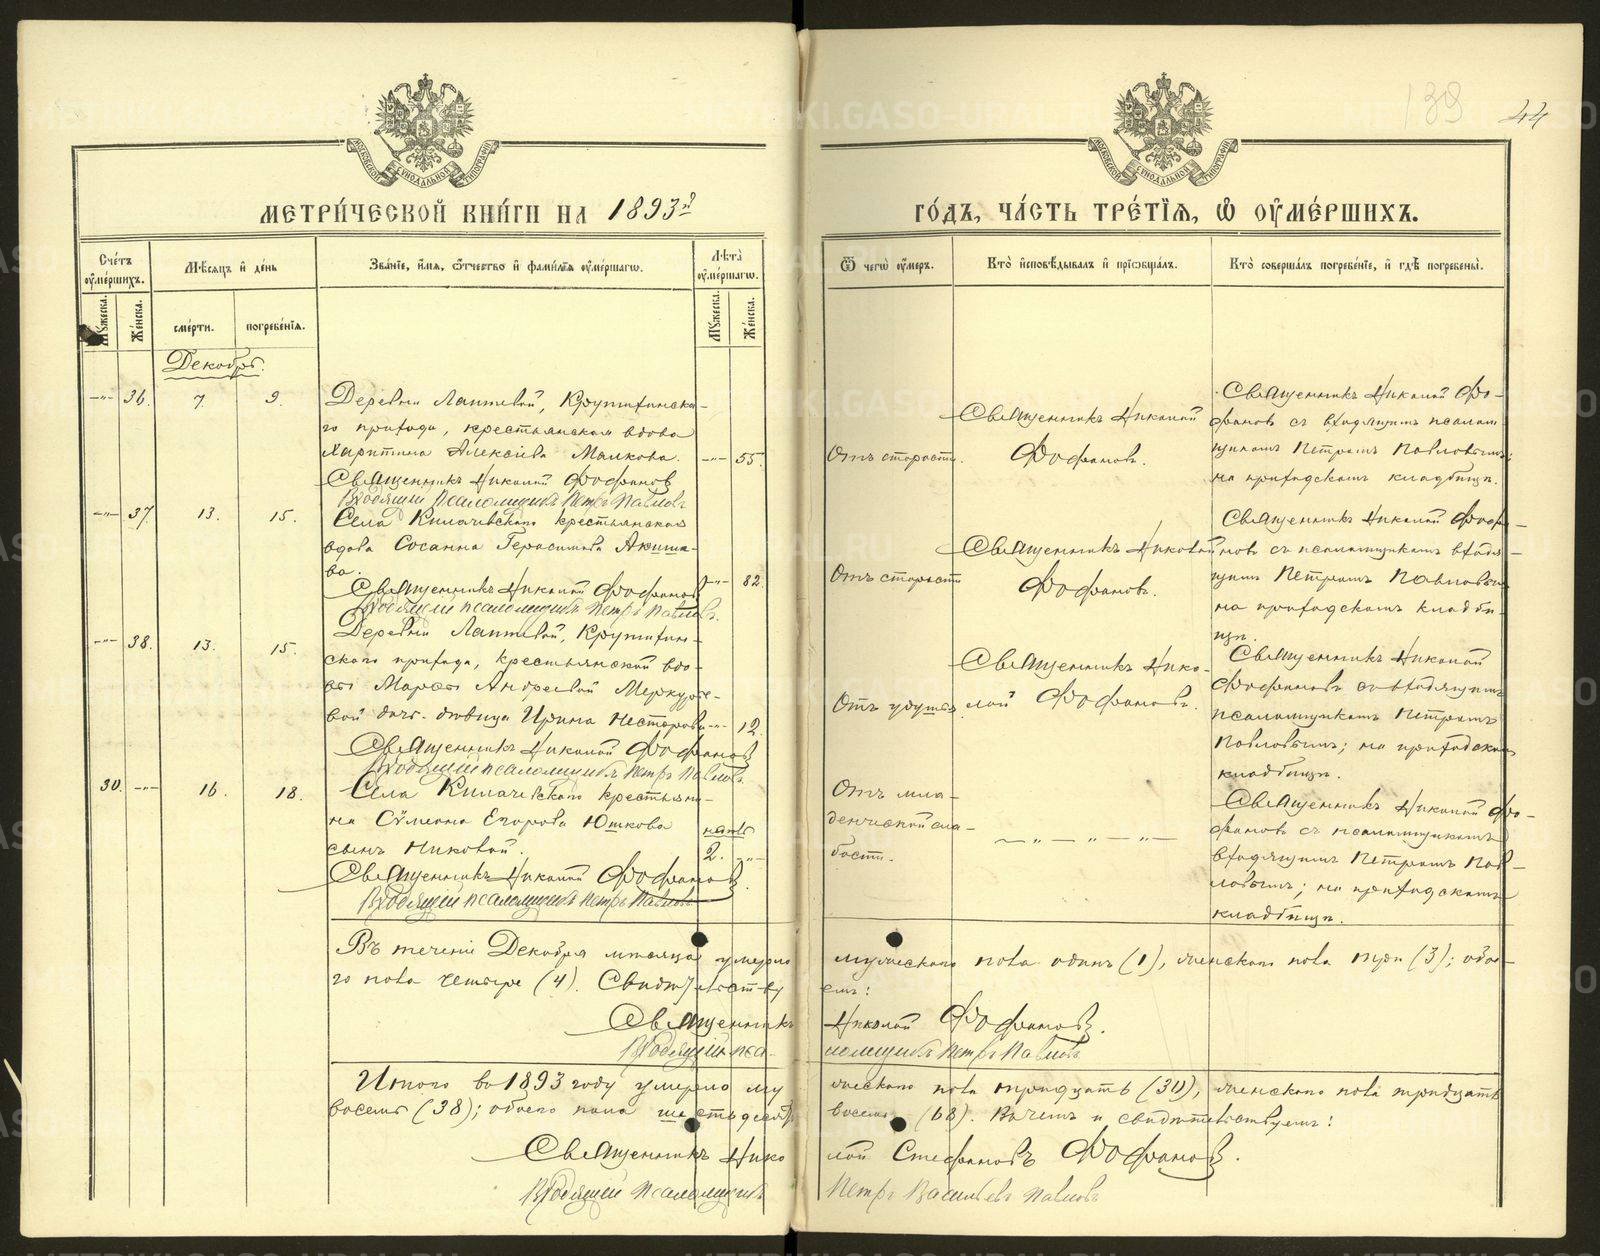 139
44
МЕТРИ́ЧЕСКОЙ КНИ́ГИ НА 1893й
ГО́ДЪ, ЧА́СТЬ ТРЕ́ТЇѦ, Ѡ҆ ОУ҆МЕ́РШИХЪ.
Сче́тъ оу҆ме́ршихъ.
Му́жеска.
Же́нска.
Мѣ́сѧцъ и҆ де́нь
сме́рти.
погребе́нїѧ.
Зва́нїе, и҆́мѧ, ѻ҆́тчество и҆ фами́лїѧ оу҆ме́ршагѡ.
Лѣ́та оу҆ме́ршагѡ.
Му́жеска.
Же́нска.
Ѿ чегѡ̀ оу҆́меръ.
Кто̀ и҆сповѣ́дывалъ и҆ прїѡбща́лъ.
Кто̀ соверша́лъ погребе́нїе, и҆ гдѣ̀ погребены̀.
Декабрь.
—"— 36. 7. 9.
Деревни Лаптевой, Крутихинска-
го прихода, крестьянская вдова
Харитина Алексіева Малкова. —"— 55.
Священникъ Николай Фофановъ
Входящій псаломщикъ Петръ Павловъ
Отъ старости.
Священникъ Николай
Фофановъ.
Священникъ Николай Фо-
фановъ съ входящимъ псалом
щикомъ Петромъ Павловымъ;
на приходскомъ кладбищѣ.
—"— 37. 13. 15.
Села Килачевскаго крестьянская
вдова Сосанна Герасимова Акиша-
ва. —"— 82.
Священникъ Николай Фофановъ
Входящій псаломщикъ Петръ Павловъ.
Отъ старости
Священникъ Николай
Фофановъ.
Священникъ Николай Фофа-
новъ съ псаломщикомъ входя-
щимъ Петромъ Павловым
на приходскомъ кладби-
щѣ.
—"— 38. 13. 15.
Деревни Лаптевой, Крутихин-
скаго прихода, крестьянской вдо-
вы Марѳы Андреевой Меркурье-
вой дочь девица Ирина Несторова —"— 12.
Священникъ Николай Фофановъ
Входящій псаломщикъ Петръ Павловъ.
Отъ удушья
Священникъ Нико-
лай Фофановъ.
Священникъ Николай
Фофановъ со входящимъ
псаломщикомъ Петромъ
Павловымъ; на приходском
кладбищѣ.
30. —"— 16. 18.
Села Килачевскаго крестьяни-
на Сѵмеона Егорова Юшкова
сынъ Николай.
2. —"—
Священникъ Николай Фофановъ.
Входящій псаломщикъ Петръ Павловъ
Отъ мла-
денческой сла-
бости.
— " — " — " —
Священникъ Николай Фо-
фановъ съ псаломщикомъ
входящимъ Петромъ Пав-
ловымъ; на приходскомъ
кладбищѣ.
Въ теченіи Декабря мѣсяца умерло мужескаго пола одинъ (1), женскаго пола три (3); обое-
го пола четыре (4). Свидѣтельству емъ:
Священникъ Николай Фофановъ.
Входящій пса- ломщикъ Петръ Павловъ
Итого въ 1893 году умерло му жескаго пола тридцать (30), женскаго пола тридцать
восемь (38); обоего пола шестьдесятъ восемь (68). Въ чемъ и свидѣтельствуемъ:
Священникъ Нико лай Стефановъ Фофановъ.
Входящій псаломщикъ Петръ Васильевъ Павловъ